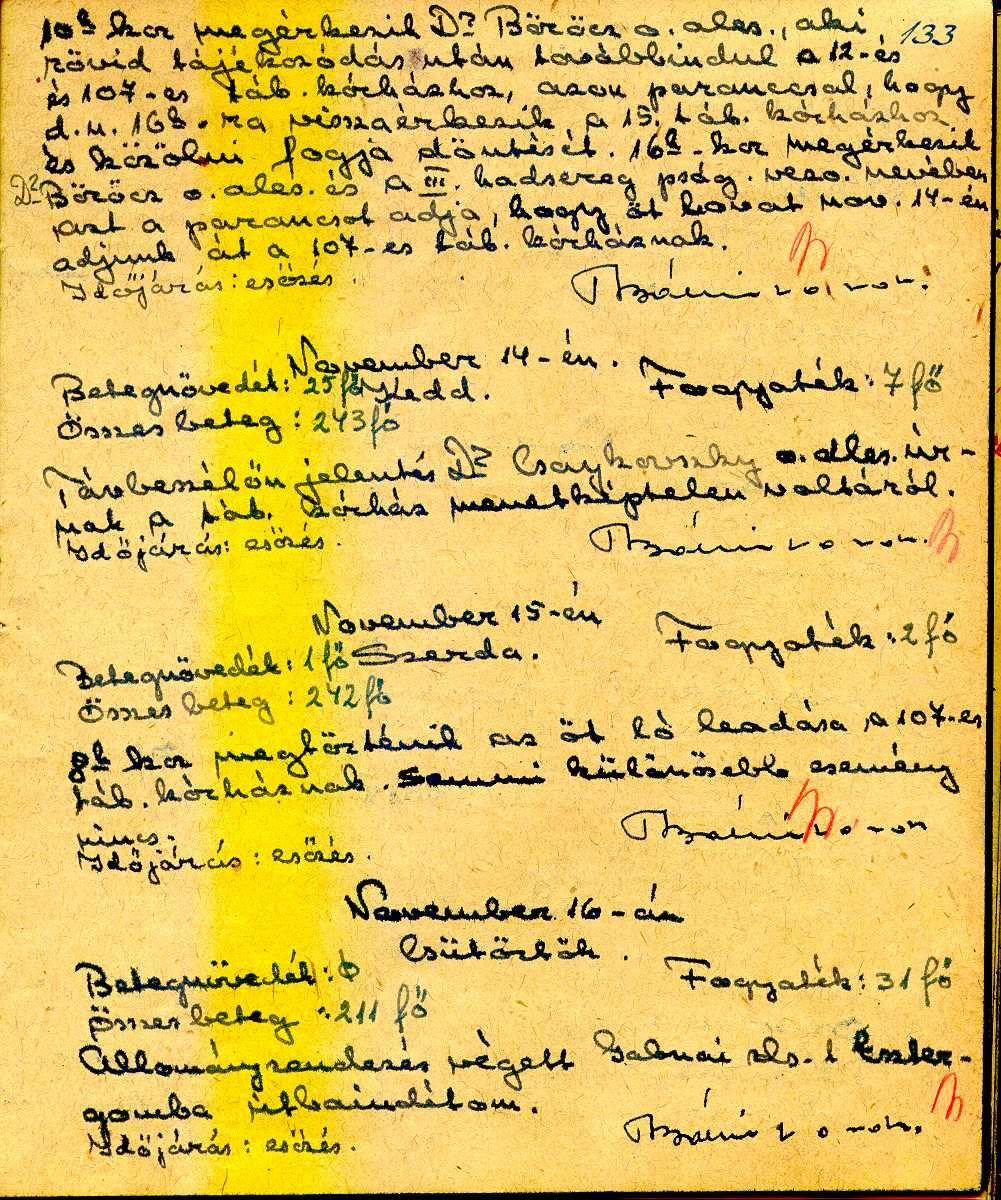 133
10ʰ kor megérkezik Dʳ Böröcz o. ales., aki
rövid tájékozódás után továbbindul a 12-es
és 107-es táb. kórházhoz, azon paranccsal, hogy
d.u. 16ʰ-ra visszaérkezik a 15. táb. kórházhoz
és közölni fogja döntését. 16ʰ-kor megérkezik
Dʳ Böröcz o. ales. és a III. hadsereg pság. vezo. nevében
azt a parancsot adja, hogy öt lovat nov. 14-én
adjunk át a 107-es táb. kórháznak.
Időjárás: esőzés.
November 14-én.
Betegnövedék: 25 fő Kedd. Fogyaték: 7 fő
Összes beteg: 243 fő
Távbeszélőn jelentés Dʳ Csajkovszky o. ales. úr-
nak a táb. kórház menetképtelen voltáról.
Időjárás: esőzés.
November 15-én
Betegnövedék: 1 fő Szerda. Fogyaték: 2 fő
Összes beteg: 242 fő
8ʰ kor megtörténik az öt ló leadása a 107-es
táb. kórháznak. Semmi különösebb esemény
nincs.
Időjárás: esőzés.
November 16-án
Csütörtök.
Betegnövedék: 0 Fogyaték: 31 fő
Összes beteg: 211 fő
Állományrendezés végett zls. t Eszter-
gomba útbaindítom.
Időjárás: esőzés.